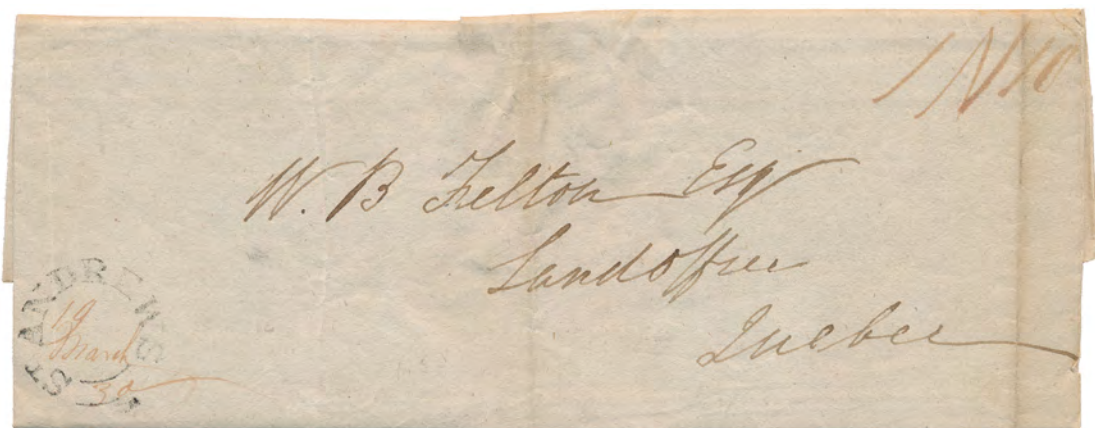 1 N 10
W. B Felton Esqr
Land Office
Quebec
ST ANDREWS
19
March
30